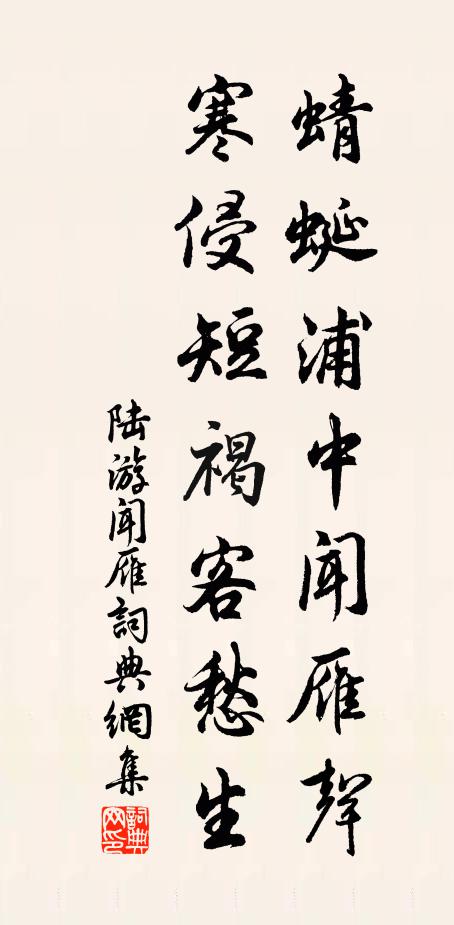 蜻蜓浦中闻雁聲
寒侵短褐客愁生
陆游闻雁詞典網集
詞典网印